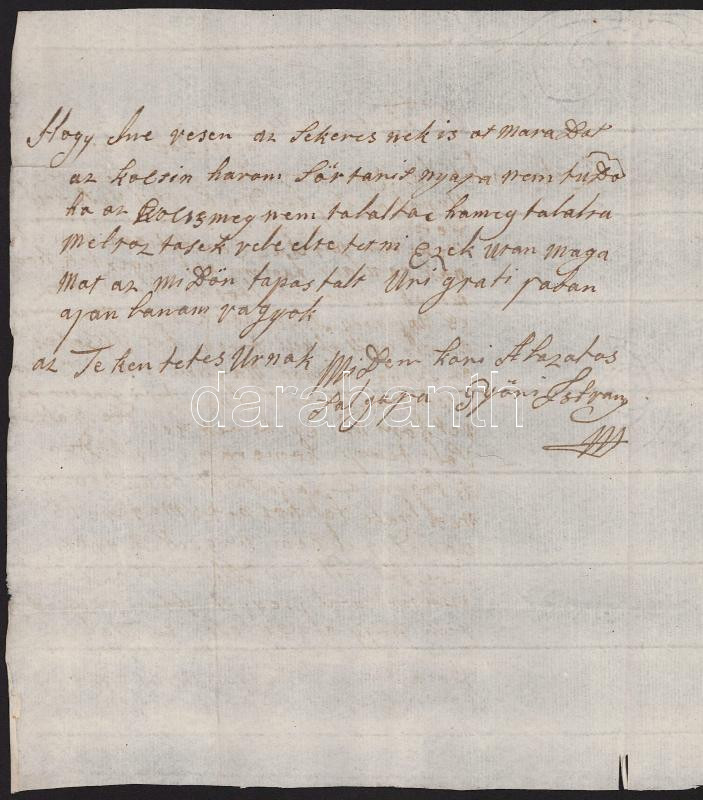 Hogy Ine vesen az Sekeres nek is ot mara Dot
az kocsin harom Sörtanis nyapa nem tu Do
ha az Kocsis meg nem talalta c hameg talalta
meltoz tasek vele elte tetni Ezek utan maga
mat az mi Dön tapas talt Uri grati jaban
ajan lanam vagyok
az Te ken tetes Urnak Mi Dem kori Alazatos
Szol gaja Györi Istvan
darabanth